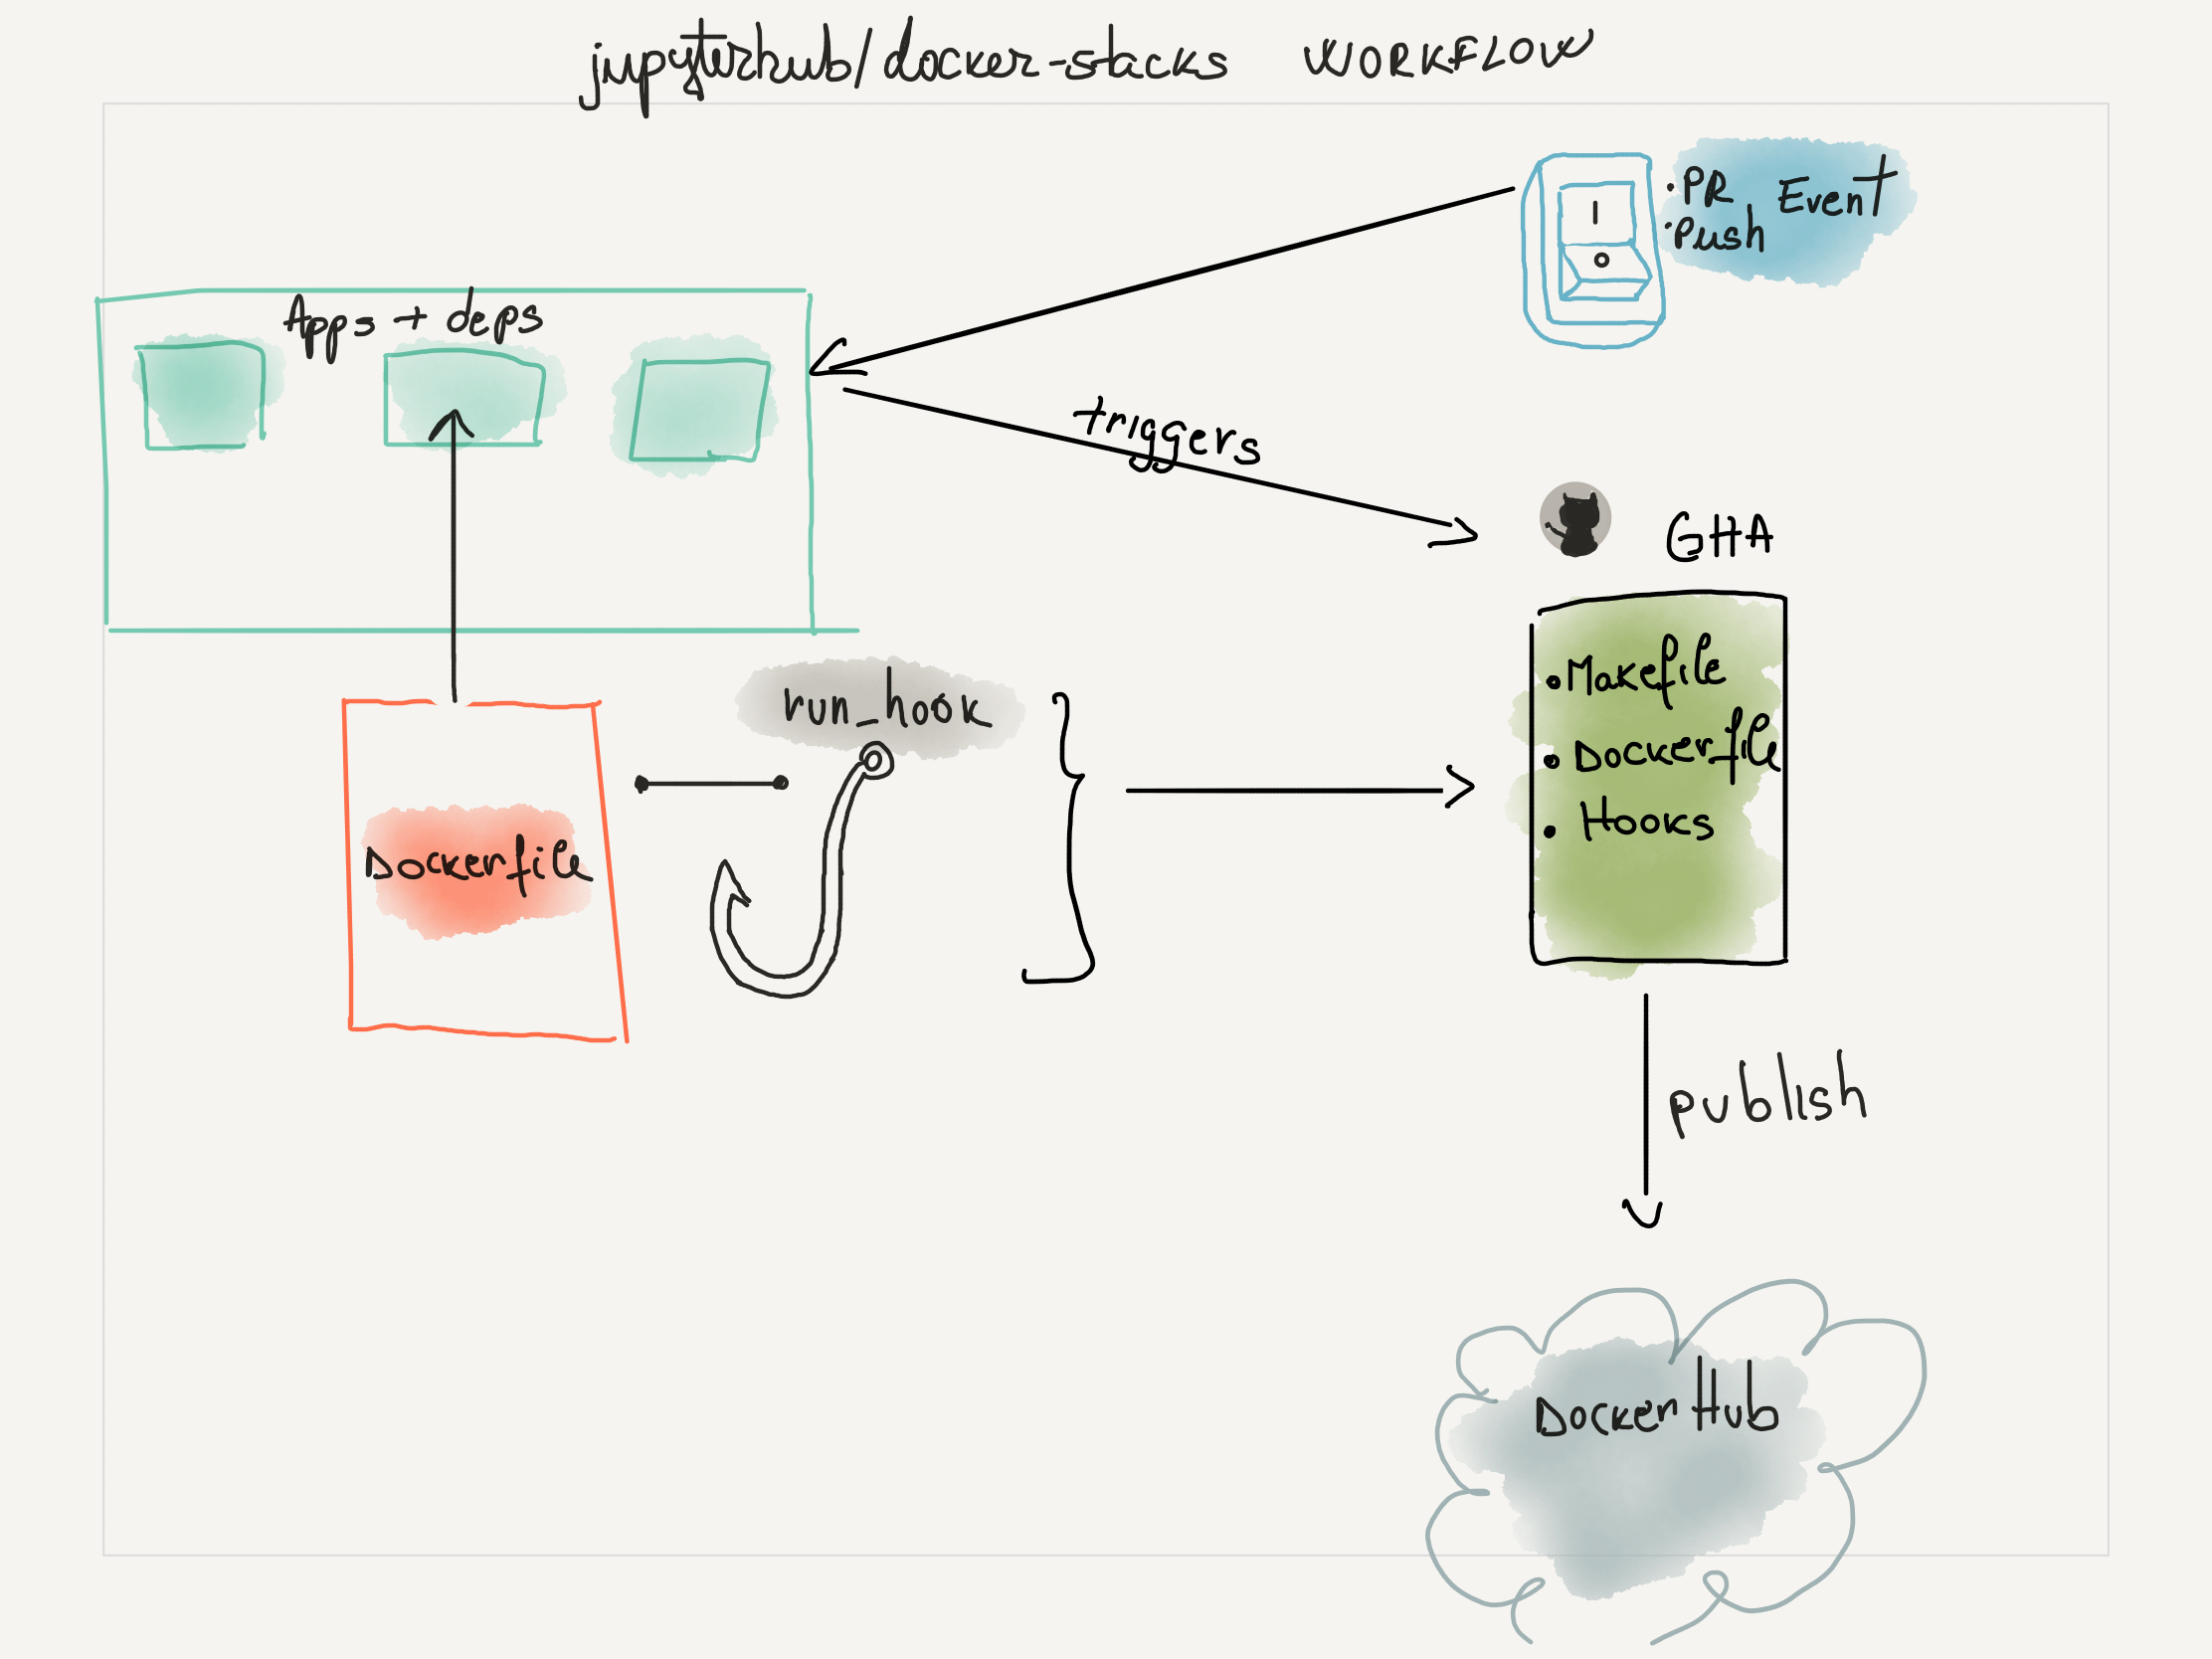 jupyterhub/docker-stacks WORKFLOW
• PR Event
• Push
Apps + deps
triggers
GHA
run_hook
• Makefile
• Dockerfile
• Hooks
Dockerfile
publish
DockerHub